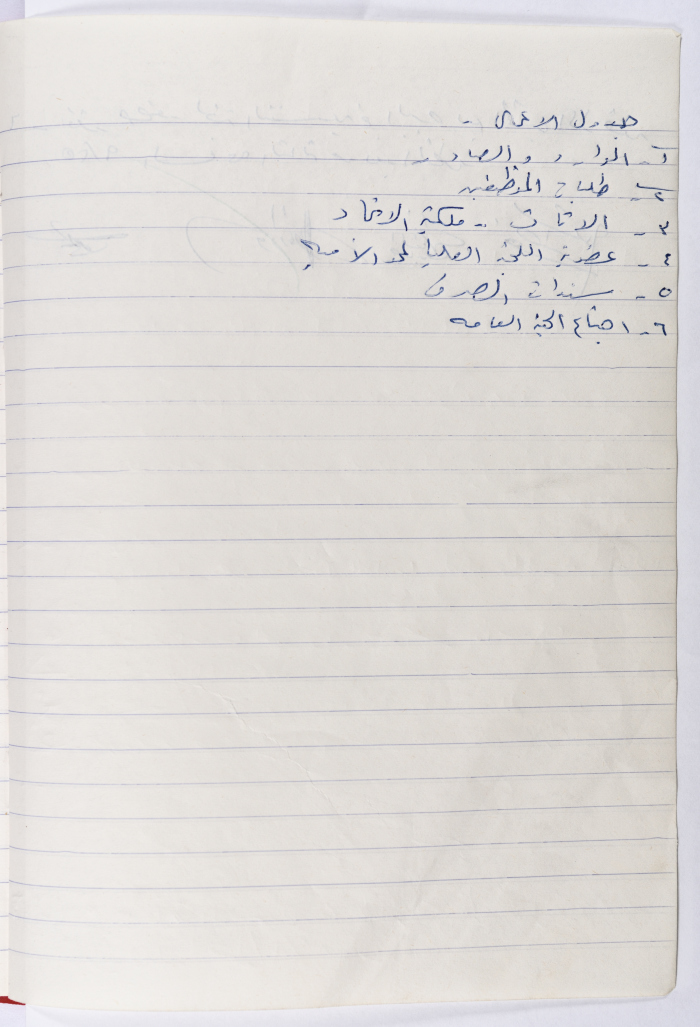 جدول الاعمال -
١- الوارد والصادر
٢- طلبات الموظفين
٣- الاثاث - ملكية الاتحاد
٤- عضوية اللجنة العليا لمحو الأمية
٥- سندات الصرف
٦- اجتماع الهيئة العامه